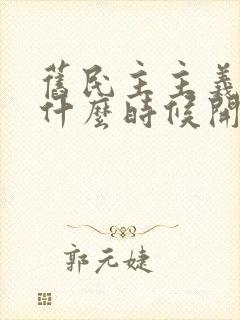 舊民主主義
什麼時候開
郭元婕